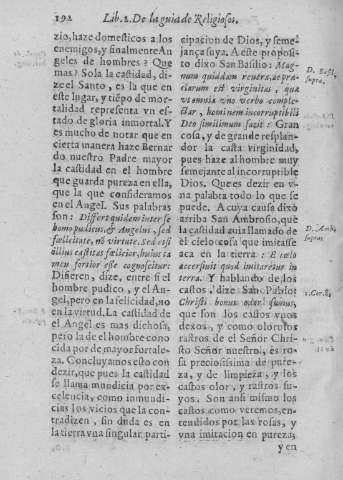 192 Lib. 2. De la guia de Religiosos.
zio, haze domesticos a los
enemigos, y finalmente Angeles
de hombres? Que
mas? Sola la castidad, dize
el Santo, es la que en
este lugar, y tiẽpo de mortalidad
representa vn estado
de gloria inmortal. Y
es mucho de notar que en
cierta manera haze Bernardo
nuestro Padre mayor
la castidad en el hombre
que guarda pureza en ella,
que la que consideramos
en el Angel. Sus palabras
son: Differt quidem inter se
homo pudicus, & Angelus, sed
fœlicitate, nõ virtute. Sed etsi
illius castitas fœlicior, huius tamen
fortior esse cognoscitur:
Difieren, dize, entre si el
hombre pudico, y el Angel,
pero en la felicidad, no
en la virtud. La castidad de
el Angel es mas dichosa,
pero la de el hombre conocida
por de mayor fortaleza.
Concluyamos esto con
dezir, que pues la castidad
se llama mundicia por excelencia,
como inmundicias
los vicios que la contradizen,
sin duda es en
la tierra vna singular participacion
de Dios, y semejança
suya. A este proposito
dixo San Basilio: Magnum
quiddam reuera, ac præclarum
est virginitas, qua
vt omnia vno verbo complectar,
hominem incorruptibili
Deo similimum facit: Gran
cosa, y de grande resplandor
la casta virginidad,
pues haze al hombre muy
semejante al incorruptible
Dios. Que es dezir en vna
palabra todo lo que se
puede. A cuya causa dixo
arriba San Ambrosio, que
la castidad auia llamado de
el cielo cosa que imitasse
aca en la tierra: E cælo
accersiuit quod imitaretur in
terra. Y hablando de los
castos, dize San Pablo:
Christi bonus odor sumus,
que son los castos vnos
dexos, y como olorosos
rastros de el Señor Christo
Señor nuestro, es rosa
preciosissima de pureza,
y de limpieza, y los
castos olor, y rastros suyos.
Son ansi mismo los
castos como veremos, entendidos
por las rosas, y
vna imitacion en pureza,
y en
D. Basil.
supra.
D. Amb.
supra.